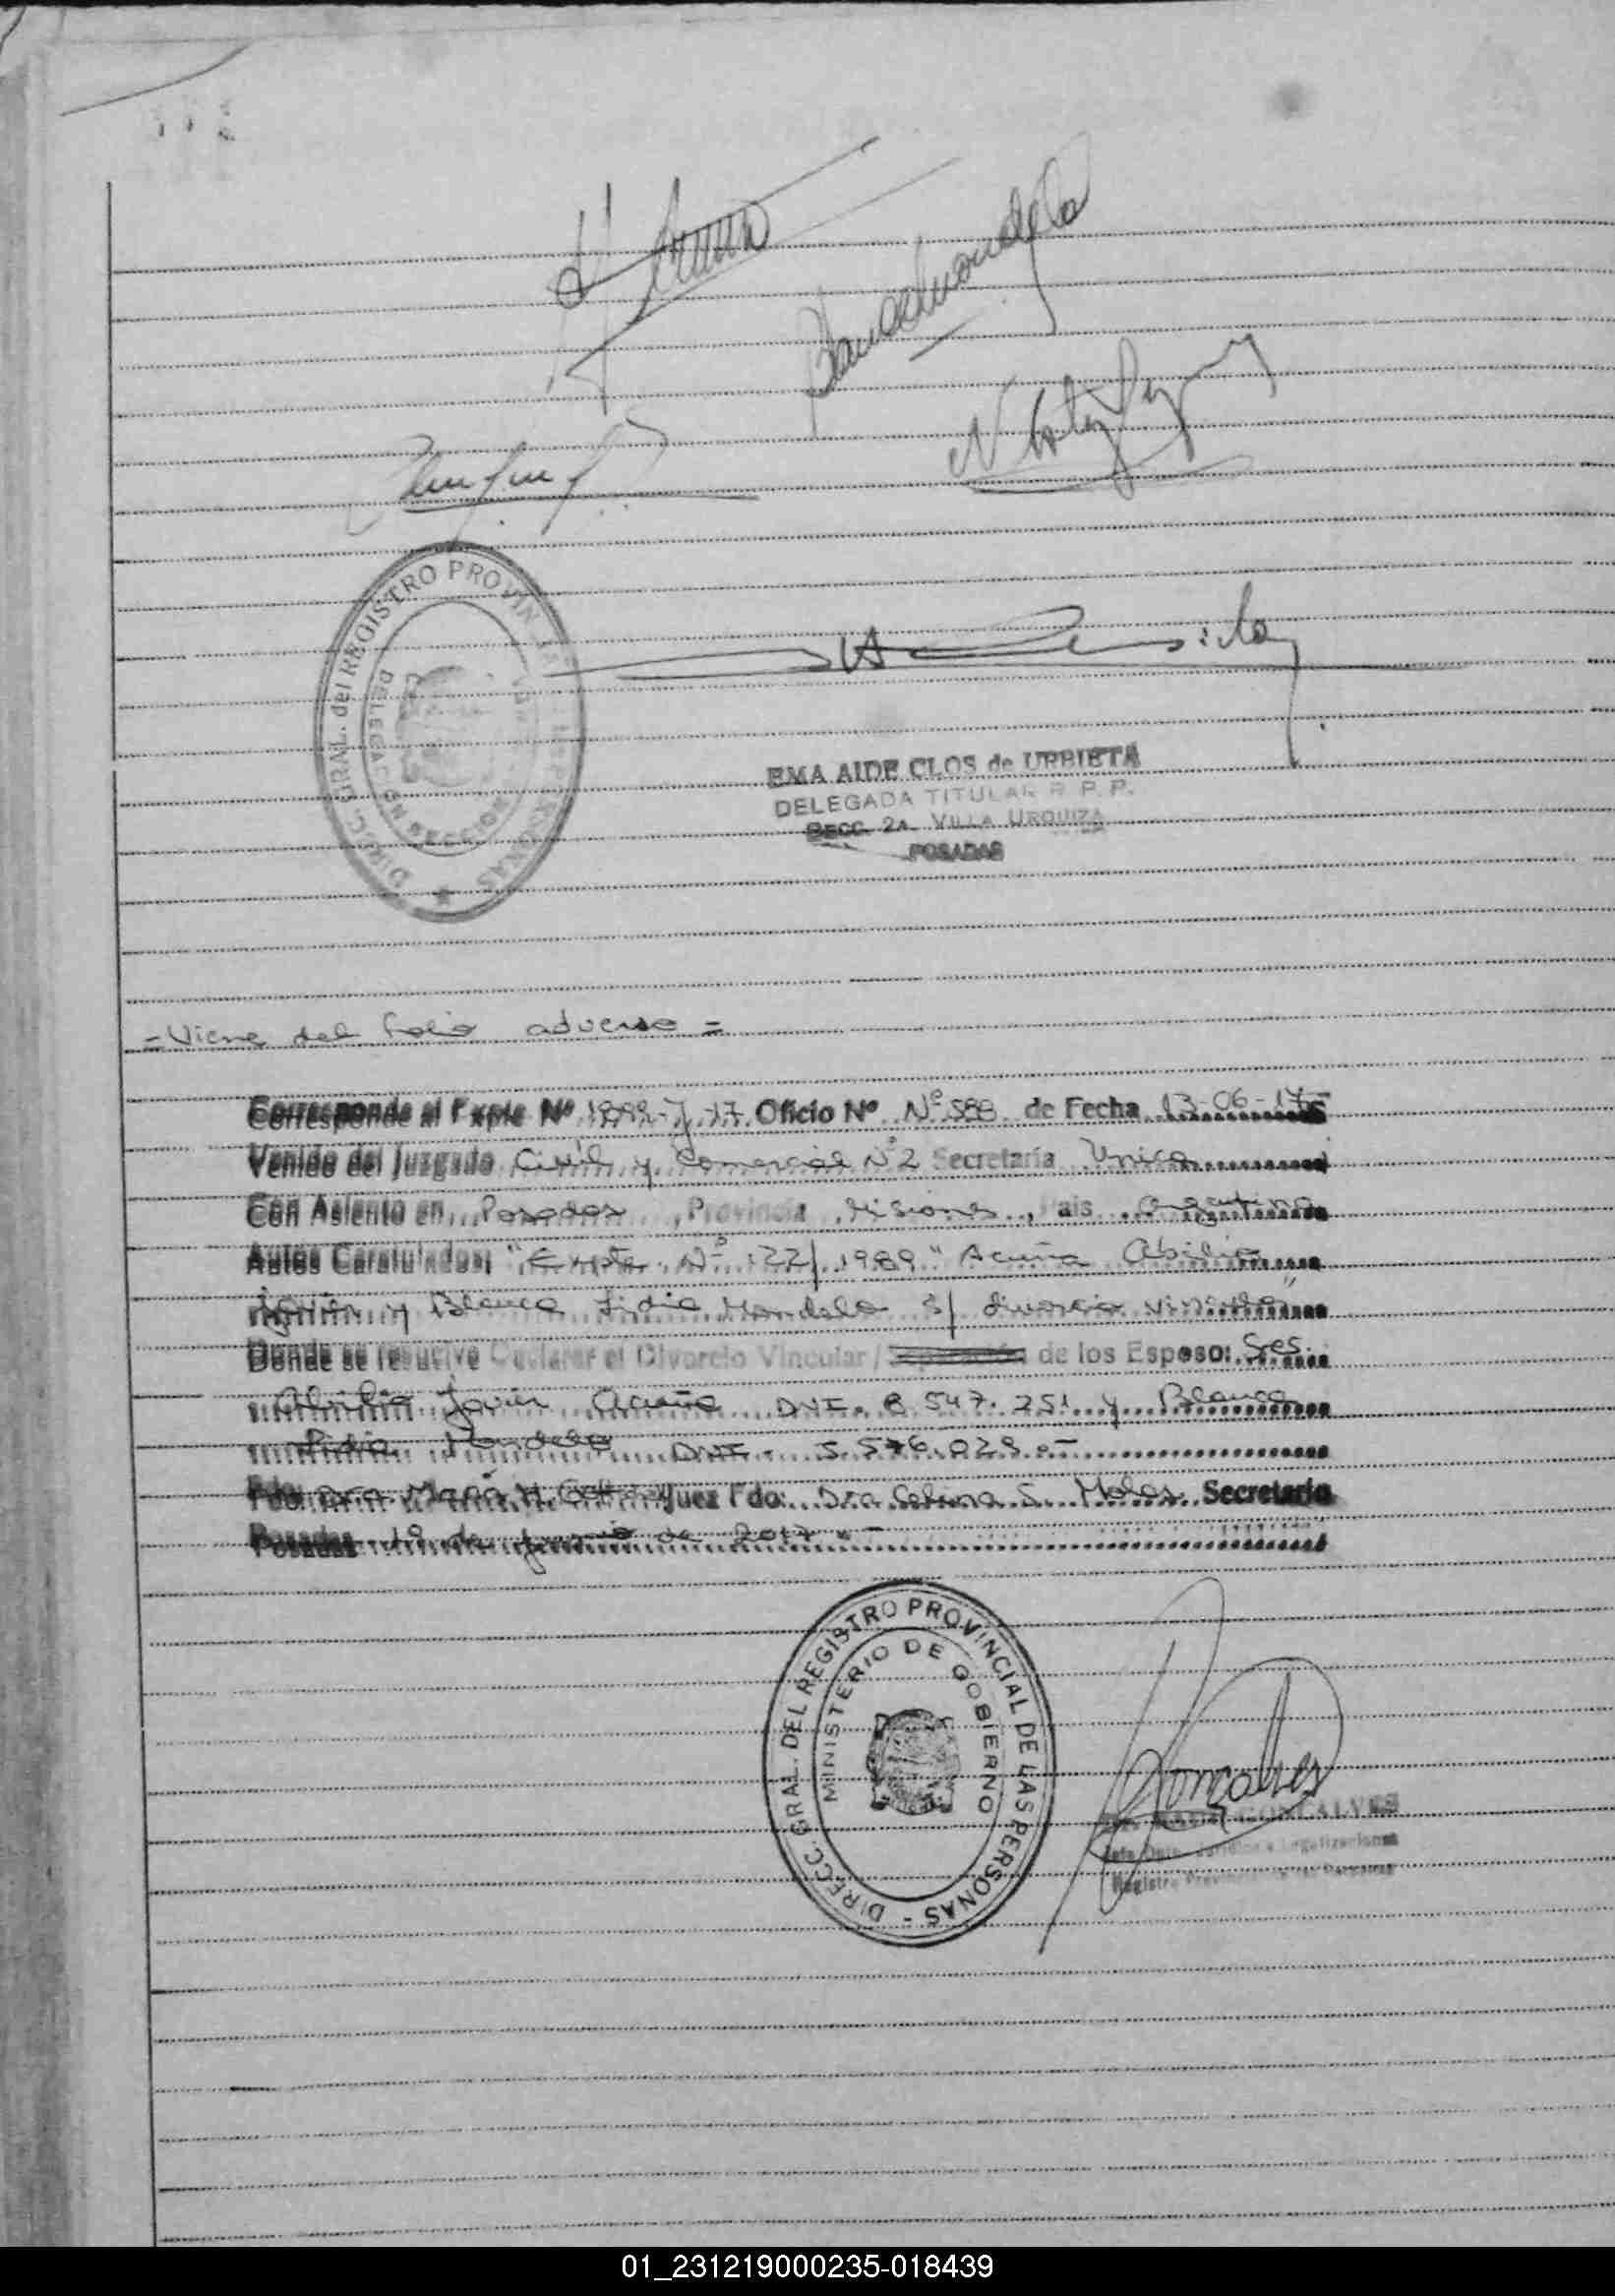 DIRECC. GRAL. del REGISTRO PROVINCIAL DE LAS PERSONAS
DELEGACIÓN SECCION
EMA AIDE CLOS de URBIETA
DELEGADA TITULAR R. P. P.
SECC. 2A. VILLA URQUIZA
POSADAS
= Viene del folio adverso =
Corresponde al Expte Nº 1899-J-17 Oficio Nº Nº 588 de Fecha 13-06-17
Venido del Juzgado Civil y Comercial Nº 2 Secretaría Unica
Con Asiento en Posadas, Provincia Misiones, Pais Argentina
Autos Caratulados; "Expte. Nº 122/1989" Acuña Abilio
Javier y Blanca Lidia Mondelo s/ divorcio vincular"
Donde se resuelve Declarar el Divorcio Vincular / de los Esposo: Sres.
Abilio Javier Acuña DNI. 8.547.251 y Blanca
Lidia Mondelo DNI. 5.576.029.-
Fdo: Dra María H. Juez Fdo: Dra Celina S. Moles Secretario
Posadas 19 de junio de 2017.-
DIRECC. GRAL. DEL REGISTRO PROVINCIAL DE LAS PERSONAS -
MINISTERIO DE GOBIERNO
Gonçalves
GONCALVES
Jefe Dpto. Jurídico e Legalizaciones
Registro Provincial de las Personas
01_231219000235-018439